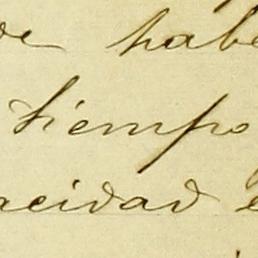 de habe
tiempo
acidad e